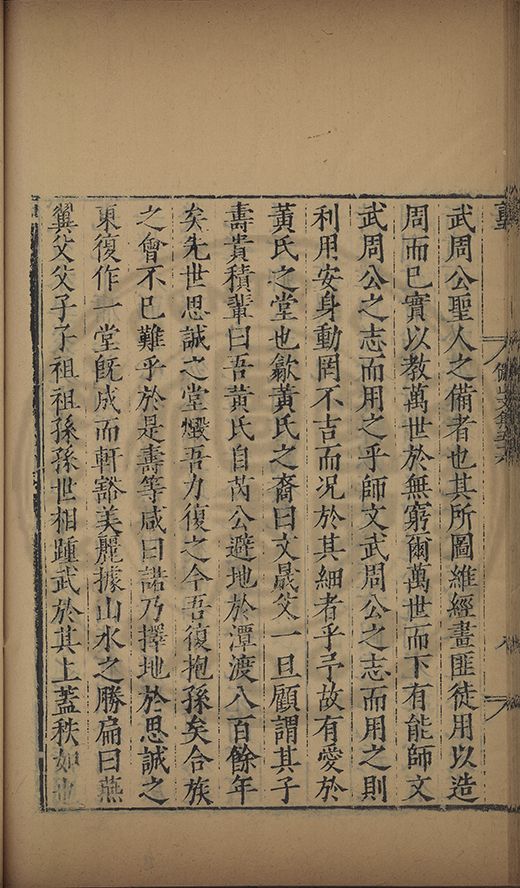 武周公聖人之備者也其所圖維經畫匪徒用以造
周而已實以教萬世於無窮爾萬世而下有能師文
武周公之志而用之乎師文武周公之志而用之則
利用安身動罔不吉而況於其細者乎予故有愛於
黃氏之堂也歙黃氏之裔曰文晟父一旦顧謂其子
壽貴積輩曰吾黃氏自芮公避地於潭渡八百餘年
矣先世思誠之堂燬吾力復之今吾復抱孫矣合族
之會不已難乎於是壽等咸曰諾乃擇地於思誠之
東復作一堂旣成而軒豁美麗據山水之勝扁曰燕
翼父父子子祖祖孫孫世相踵武於其上蓋秩如也